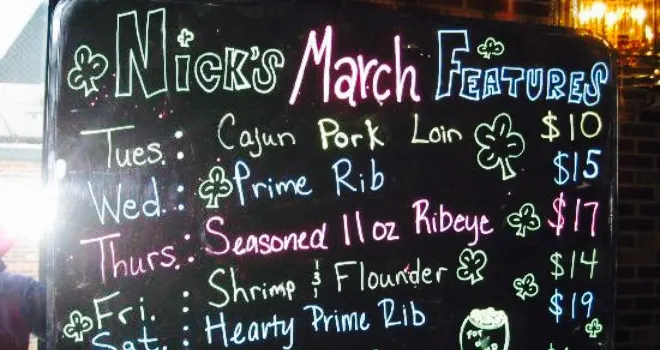 Nick's March Features
Tues: Cajun Pork Loin $10
Wed: Prime Rib $15
Thurs: Seasoned 11oz Ribeye $17
Fri: Shrimp & Flounder $14
Sat: Hearty Prime Rib $19